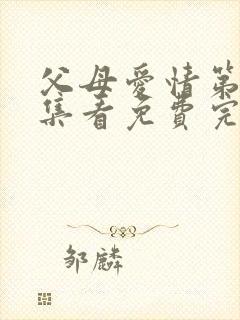 父母愛情第
集看免費完
邹麟